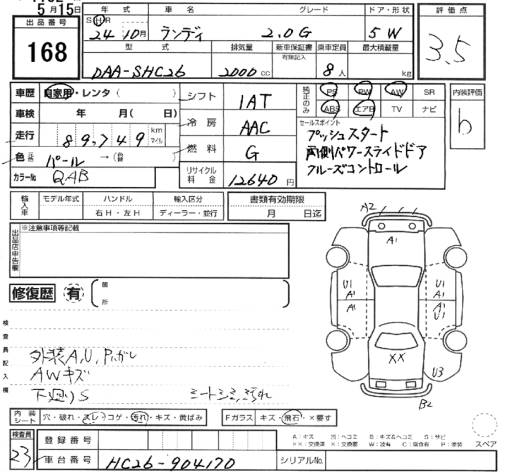 5月15日
出品番号
168
年式 車名 グレード ドア・形状
SⒽR
24年10月 ランディ 2.0G 5W
型式 排気量 新車保証書 乗車定員 最大積載量
有 記録のみ
DAA-SHC26 2000cc 8人 kg
評価点
3.5
車歴 自家用・レンタ( )
車検 年 月( 日)
走行 89,749 km マイル
色 パール →
カラーNo. QAB
シフト 1AT
冷房 AAC
燃料 G
リサイクル料金 12640円
純正のみ
PS PW AW SR
ABS エアB TV ナビ
内装評価
b
セールスポイント
プッシュスタート
両側パワースライドドア
クルーズコントロール
輸入車 モデル年式 ハンドル 輸入区分
右H・左H ディーラー・並行
書類有効期限
月 日迄
出品店申告欄 ※注意事項等記載
修復歴 有 箇所
検査員記入欄
外装A,U,Pハガレ
AWキズ
下廻りS
シートシミ、汚れ
A2
A1
U1 U1
A1 A1
A1 A1
XX
U3
B2
内装シート 穴・破れ・スレ・コゲ・汚れ・キズ・黄ばみ
Fガラス キズ・飛石・×要す
スペア
検査員
23
登録番号
車台番号 HC26-904170
シリアルNo.